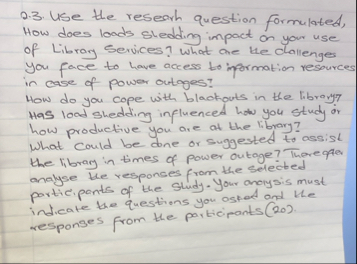 2.3. Use the research question formulated,
How does loads shedding impact on your use
of Library Services? what are the challenges
you face to have access to information resources
in case of power outages?
How do you cope with blackouts in the library?
Has load shedding influenced how you study or
how productive you are at the library?
What could be done or suggested to assist
the library in times of power outage? Thereafter
analyse the responses from the selected
participants of the study. Your analysis must
indicate the questions you asked and the
responses from the participants (20).